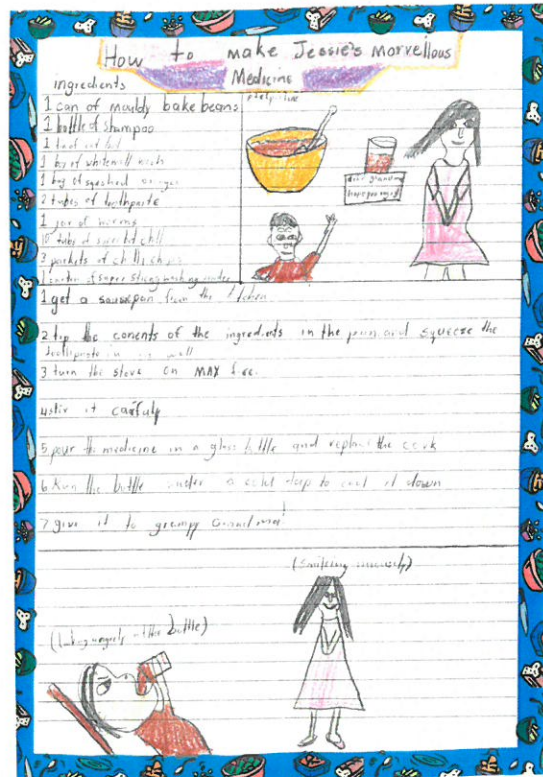 How to make Jessie's morvellous
Medicine
ingredients
1 can of mouldy bake beans
1 bottle of shampoo
1 bag of
1 bag of squashed
2 tubes of toothpaste
1 jar of worms
10 tubs of chilli
3 packets of chilly chips
1 of super sticky washing
1 get a saucepan from the kitchen
2 tip the conents of the ingredients in the pan and squeeze the
toothpaste in as well
3 turn the stove on MAX fire.
4 stir it carfuly
5 pour the medicine in a glass bottle and replace the cork
6 Run the bottle under a cold tap to cool it down
7 give it to grumpy Grandma!
(Smiling)
(looking at the bottle)